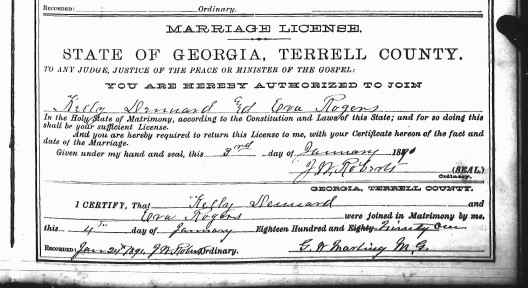 RECORDED: Ordinary.
MARRIAGE LICENSE.
STATE OF GEORGIA, TERRELL COUNTY.
TO ANY JUDGE, JUSTICE OF THE PEACE OR MINISTER OF THE GOSPEL:
YOU ARE HEREBY AUTHORIZED TO JOIN
Kelly Dennard Ed Eva Rogers
In the Holy State of Matrimony, according to the Constitution and Laws of this State; and for so doing this
shall be your sufficient License.
And you are hereby required to return this License to me, with your Certificate hereon of the fact and
date of the Marriage.
Given under my hand and seal, this 3rd day of January 18
J W Roberts (SEAL.)
Ordinary.
GEORGIA, TERRELL COUNTY.
I CERTIFY, That Kelly Dennard and
Eva Rogers were Joined in Matrimony by me,
this 4th day of January Eighteen Hundred and Eighty Ninety One
RECORDED: Jan 24th 1891, J W Roberts Ordinary. G. W M. G.